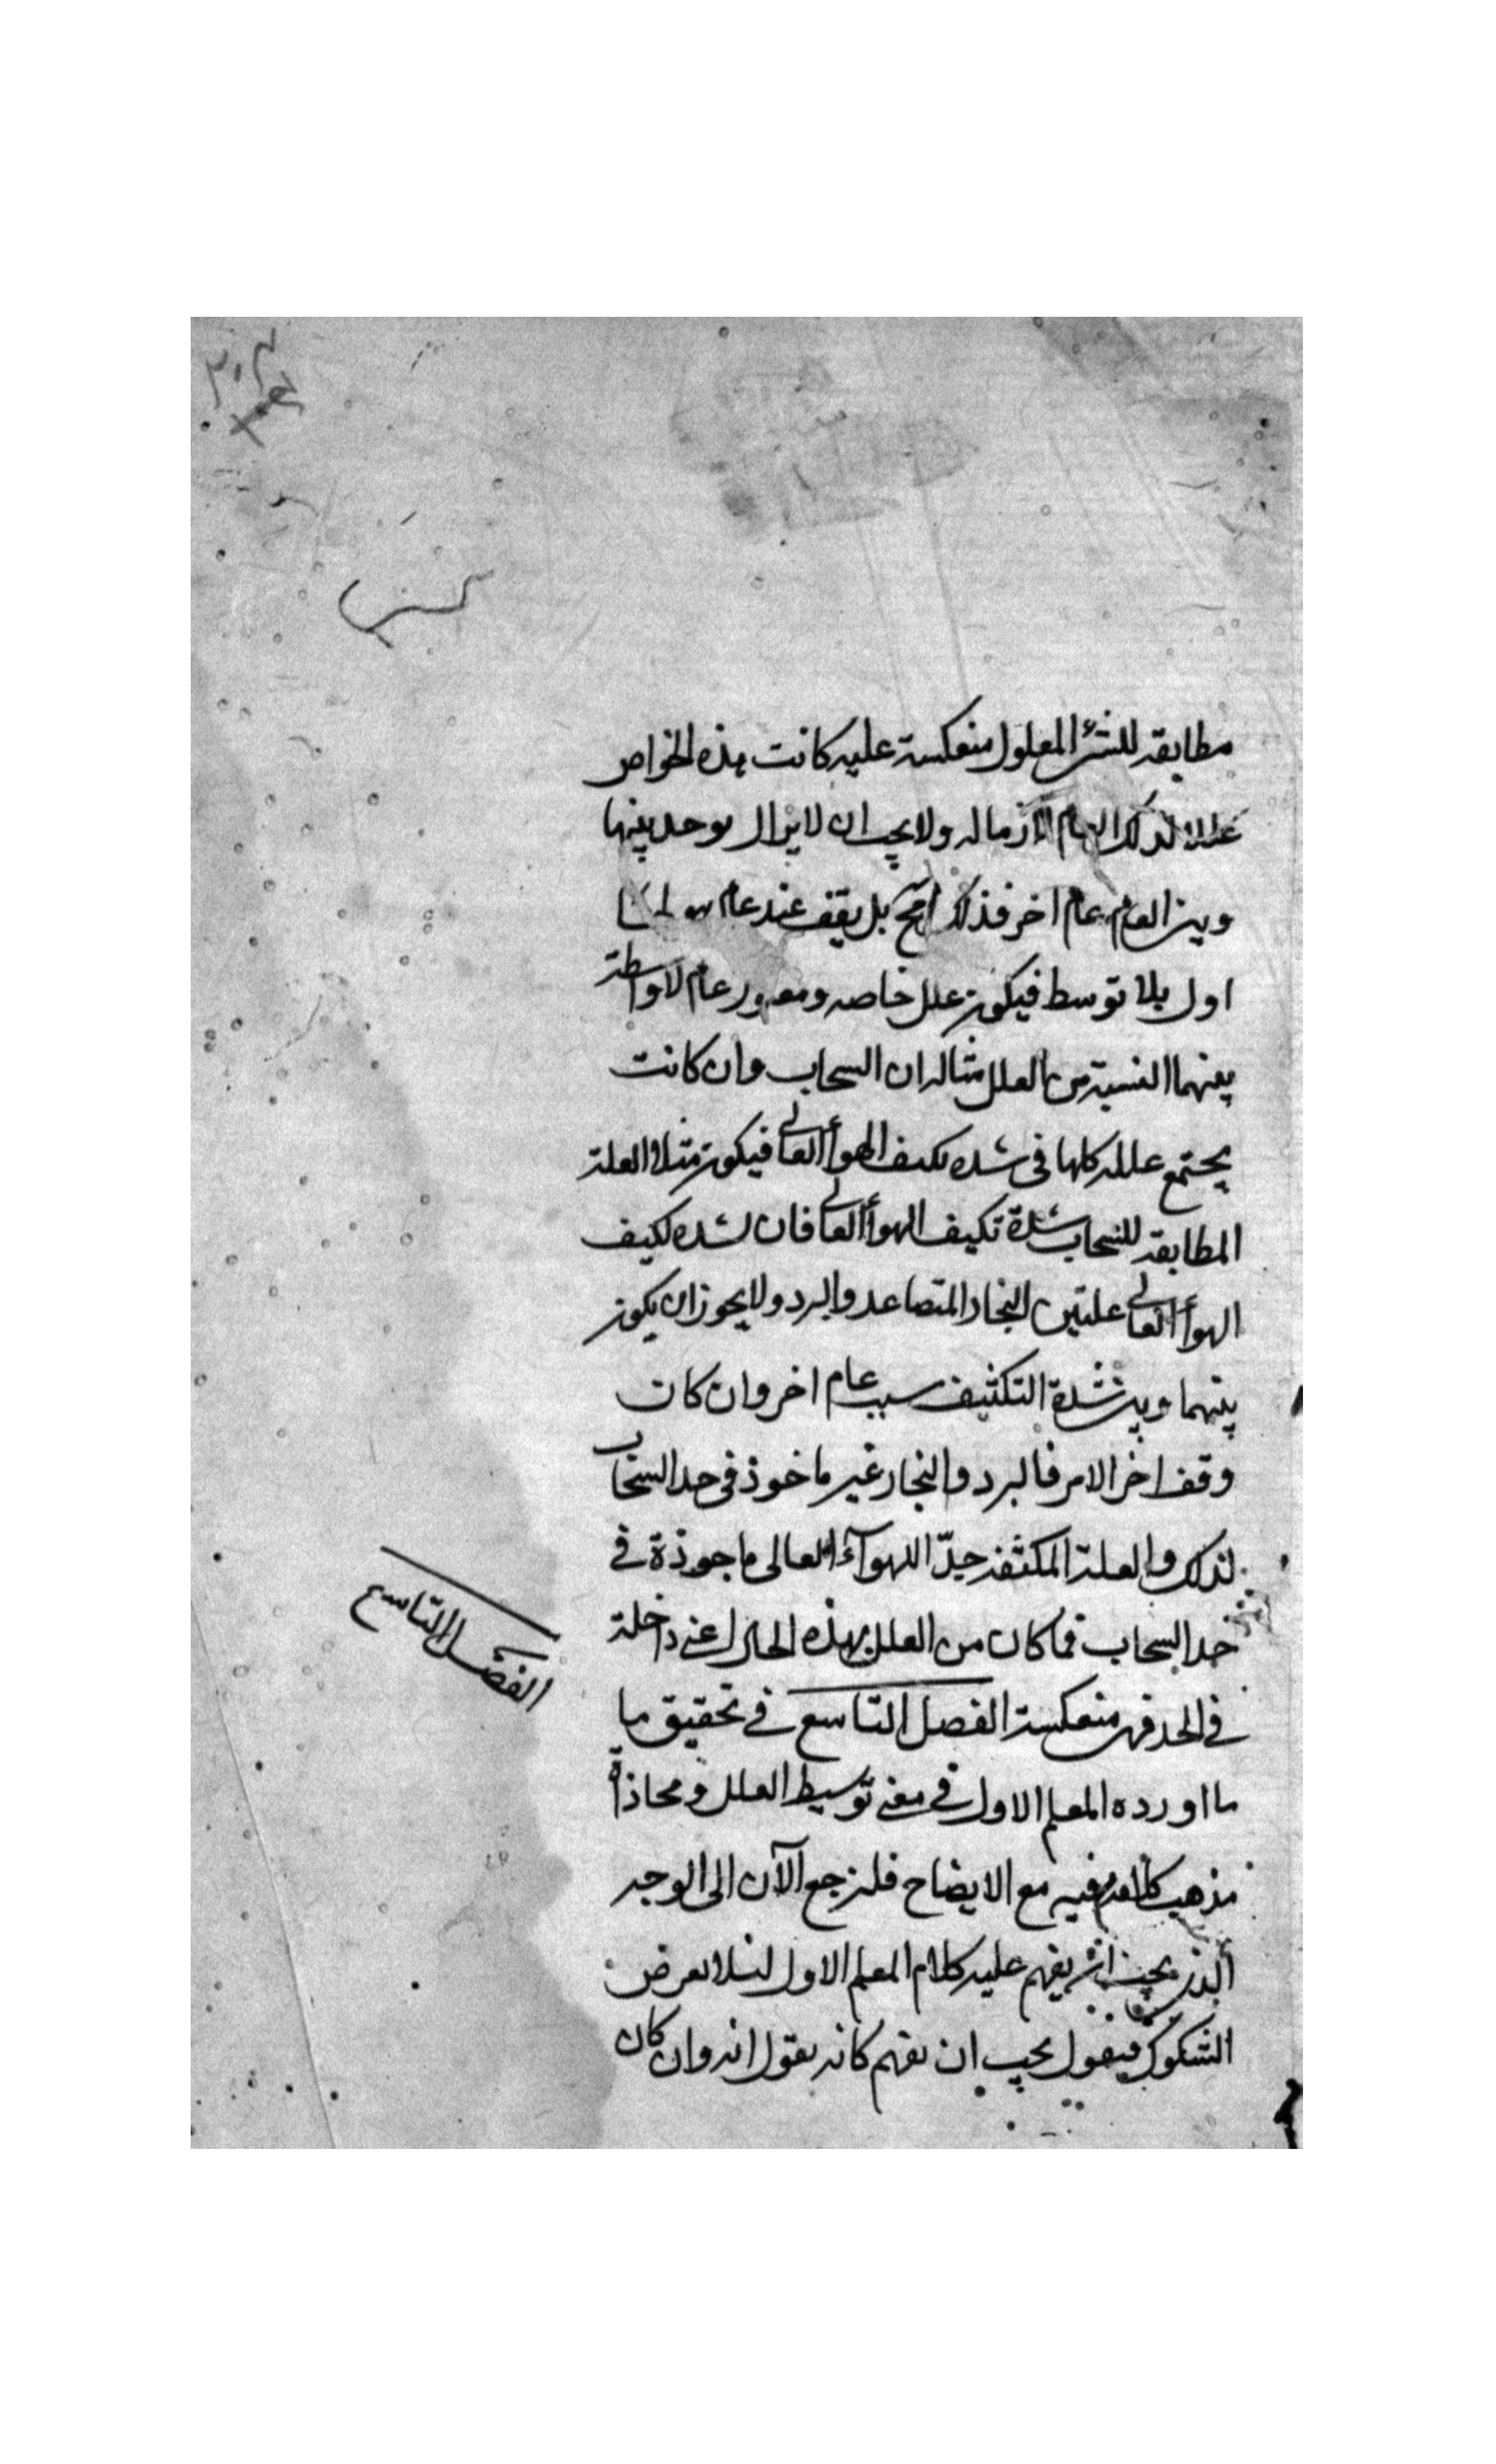 مطابقه للشئ المعلول منعكسة عليه كانت هذه الخواص
عللا لذلك العام اللازم اله ولا يجب ان لا يزال يوجد بينها
وبين العام عام اخر فذلك مح بل يقف عند عام هو لها
اول بلا توسط فيكون علل خاصه ومعلول عام لا واسطة
بينهما النسبة من العلل مثاله ان السحاب وان كانت
يجتمع علله كلها فى شده تكيف الهوأ العالى فيكون مثلا العلة
المطابقه للسحاب شدة تكيف الهوأ العالى فان لشده تكيف
الهوأ العالى علتين البخار المتصاعد والبرد ولا يجوز ان يكون
بينهما وبين شدة التكثيف سبب عام اخر وان كان
وقف اخر الامر فالبرد والبخار غير ماخوذ فى حد السحاب
لذلك والعلة المكثفه جدّا للهوآء العالى ماخوذة فى
حد السحاب فما كان من العلل بهذه الحال اعنى داخلة
فى الحد فهى منعكسة الفصل التاسع فى تحقيق ما
ما اورده المعلم الاول فى معنى توسيط العلل ومحاذاة
مذهب كلامه فيه مع الايضاح فلنرجع الآن الى الوجه
الذى يجب ان يفهم عليه كلام المعلم الاول لئلا يعرض
الشكوك فيقول يجب ان نفهم كانه يقول انه وان كان
الفصل التاسع